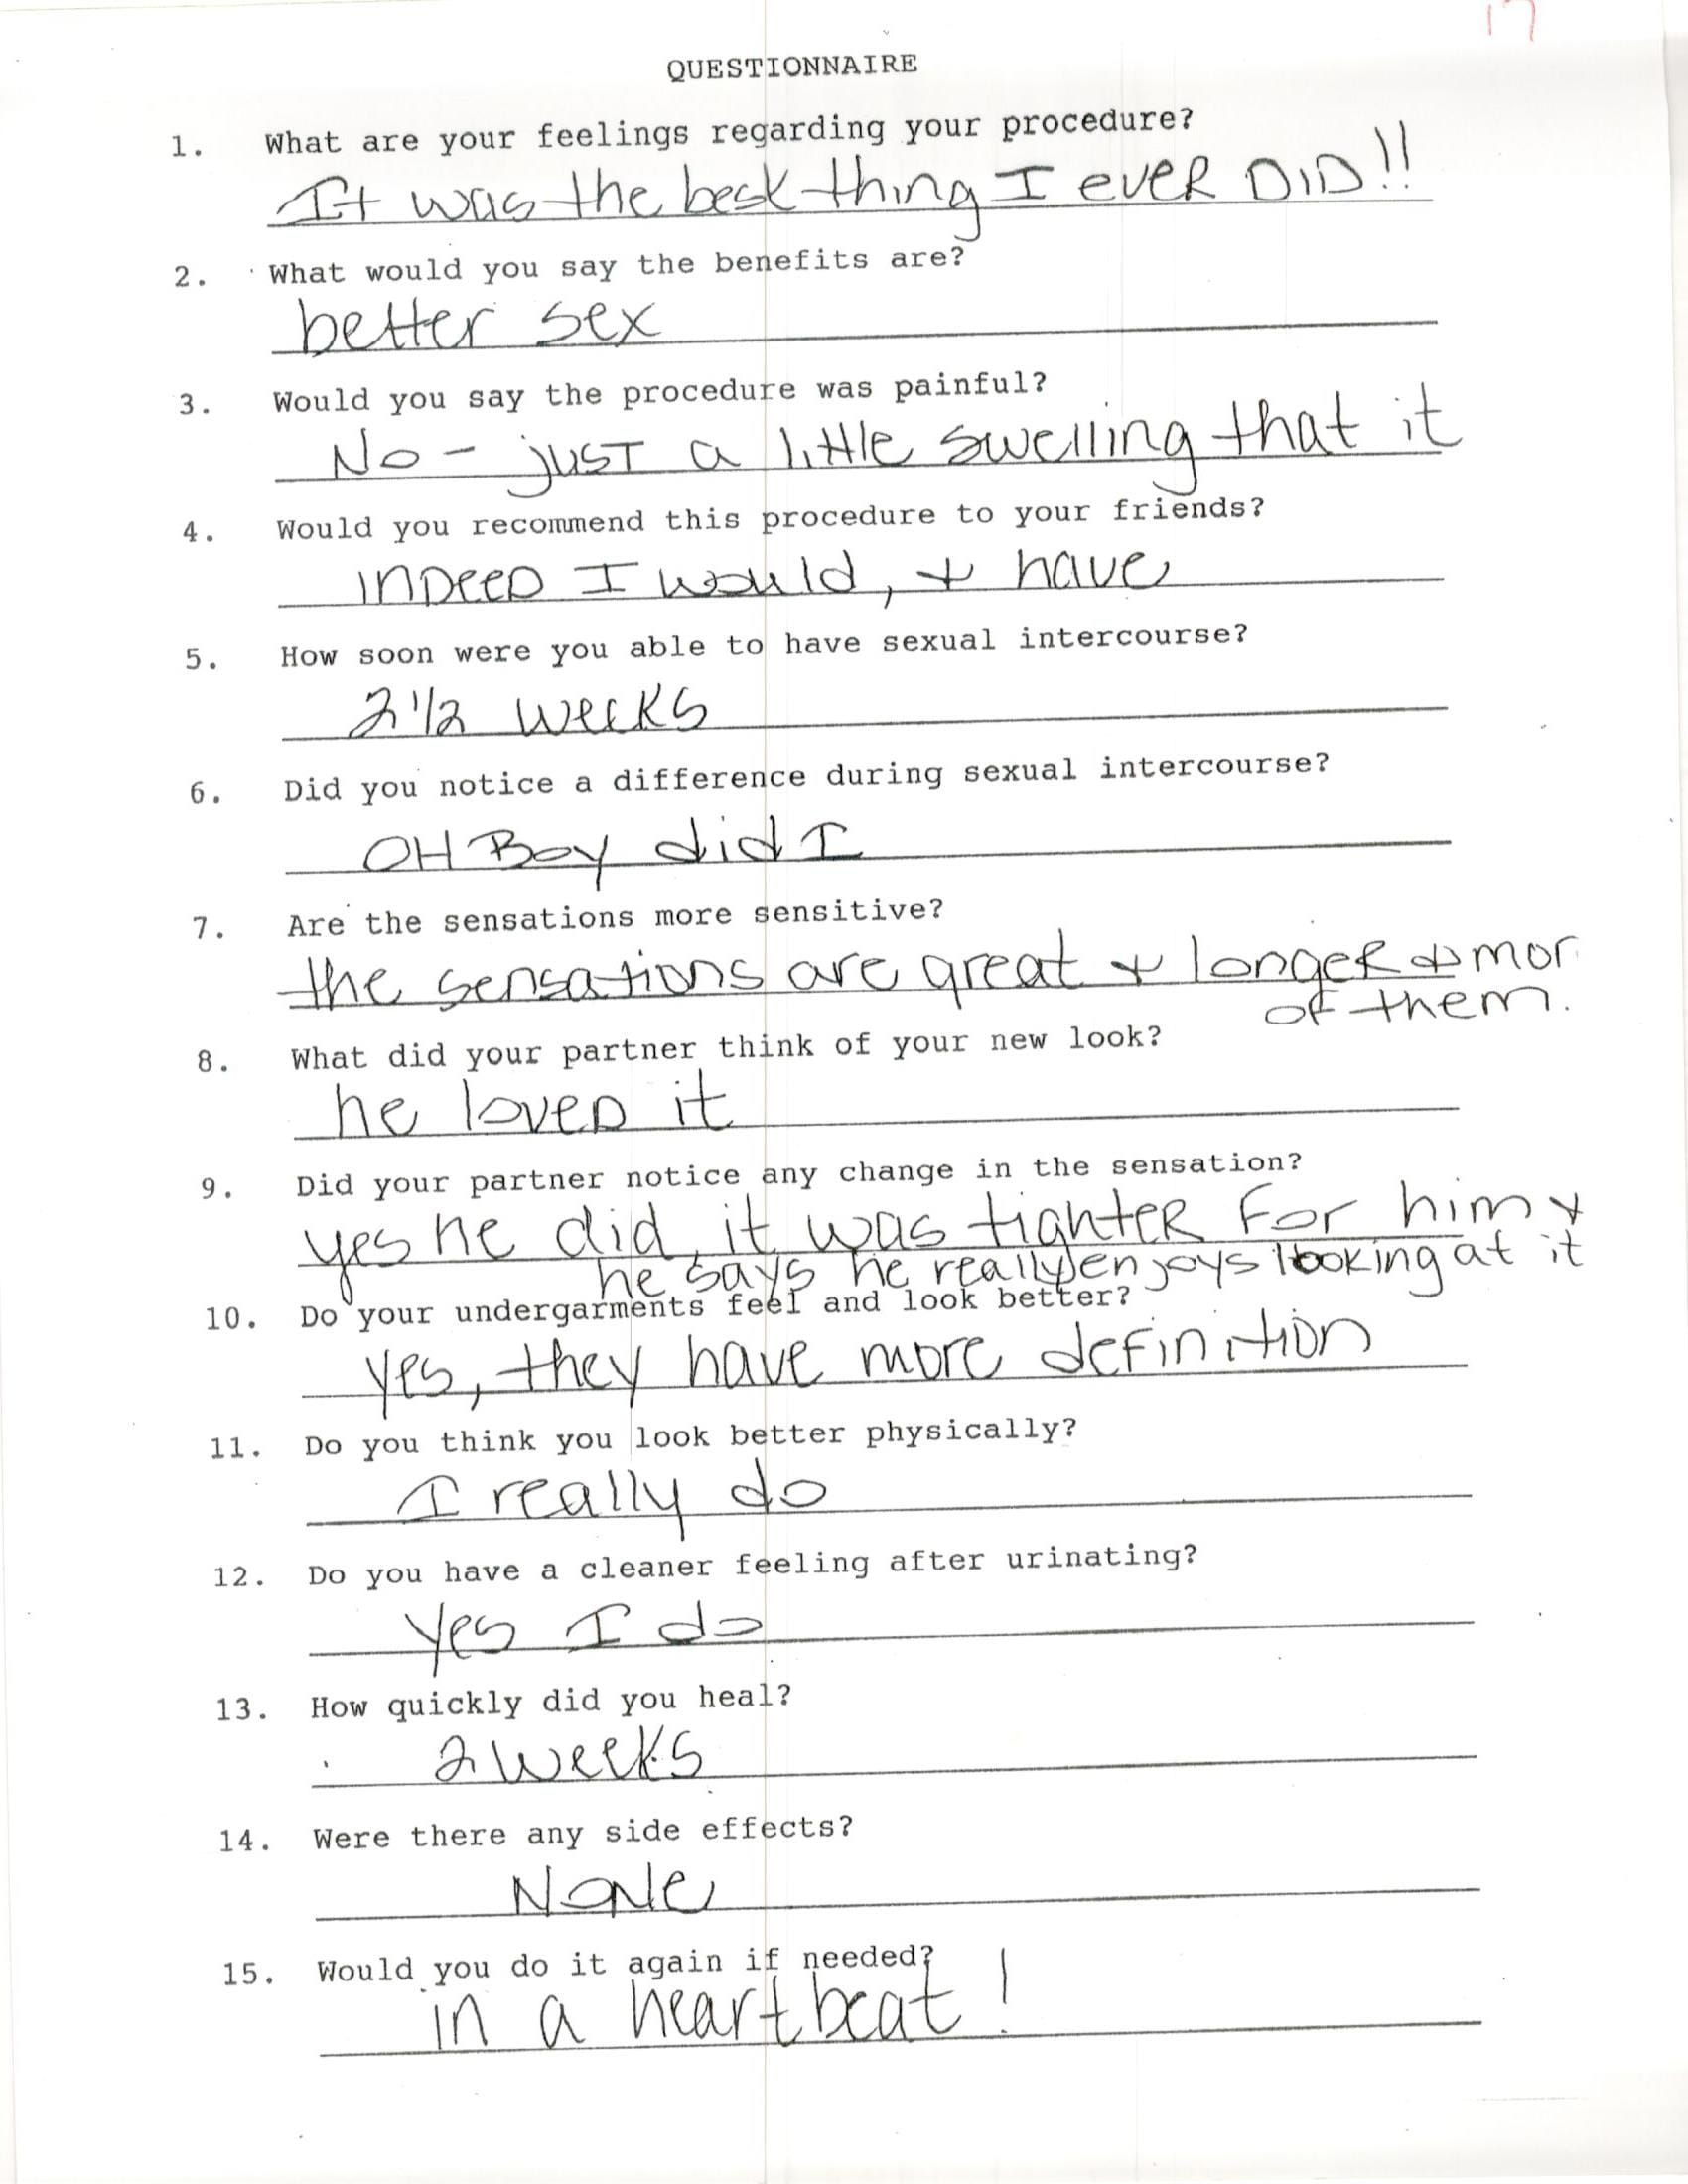 17
QUESTIONNAIRE
1. What are your feelings regarding your procedure?
It was the best thing I ever DID!!
2. What would you say the benefits are?
better sex
3. Would you say the procedure was painful?
No - just a little swelling that it
4. Would you recommend this procedure to your friends?
indeed I would, + have
5. How soon were you able to have sexual intercourse?
2 1/2 weeks
6. Did you notice a difference during sexual intercourse?
OH Boy did I
7. Are the sensations more sensitive?
the sensations are great + longer + mor
of them.
8. What did your partner think of your new look?
he loved it
9. Did your partner notice any change in the sensation?
yes he did, it was tighter for him +
he says he really enjoys looking at it
10. Do your undergarments feel and look better?
yes, they have more definition
11. Do you think you look better physically?
I really do
12. Do you have a cleaner feeling after urinating?
yes I do
13. How quickly did you heal?
2 weeks
14. Were there any side effects?
None
15. Would you do it again if needed?
in a heartbeat!